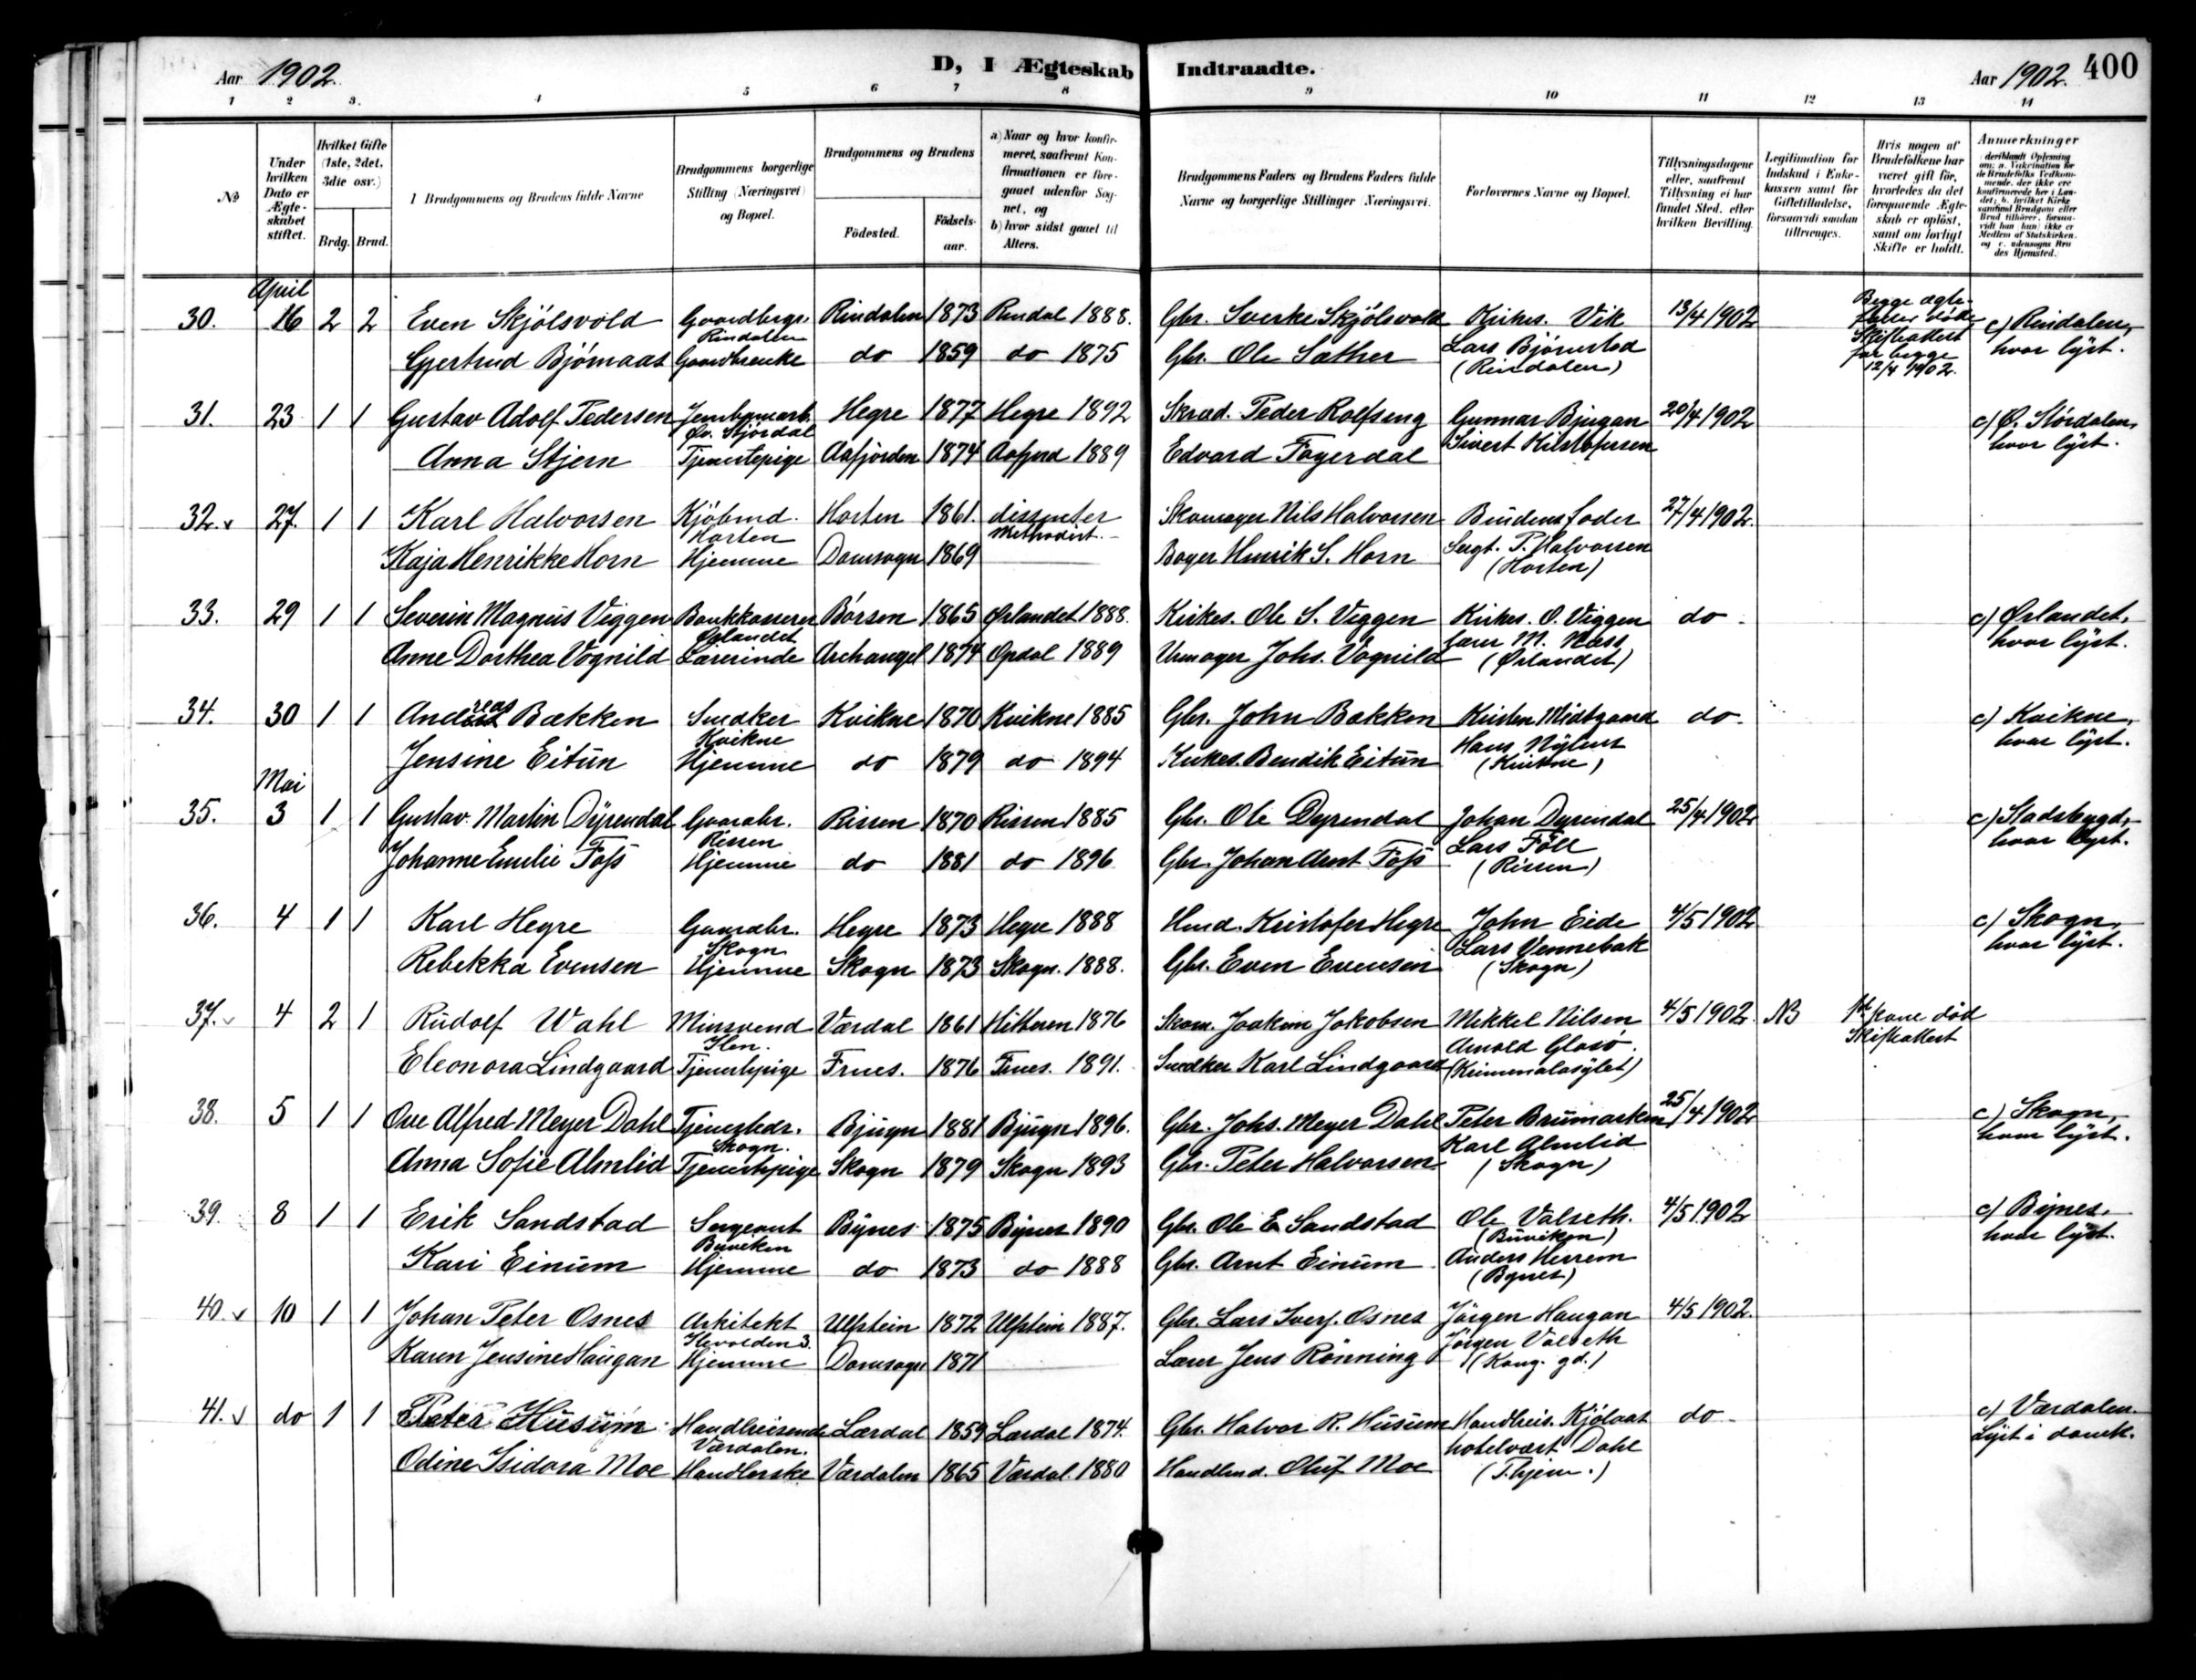 Aar 1902.
D, I Ægteskab Indtraadte.
Aar 1902. 400
1 2 3. 4 5 6 7 8 9 10 11 12 13 14
No
Under hvilken Dato er Ægteskabet stiftet.
Hvilket Gifte (1ste, 2det, 3die osv.)
Brdg. Brud.
Brudgommens og Brudens fulde Navne
Brudgommens borgerlige Stilling (Næringsvei) og Bopæl.
Brudgommens og Brudens
Födested. Födselsaar.
a) Naar og hvor konfirmeret, saafremt Konfirmationen er foregaaet udenfor Sognet, og
b) hvor sidst gaaet til Alters.
Brudgommens Faders og Brudens Faders fulde Navne og borgerlige Stillinger Næringsvei.
Forlovernes Navne og Bopæl.
Tillysningsdagene eller, saafremt Tillysning ei har fundet Sted, efter hvilken Bevilling.
Legitimation for Indskud i Enkekassen samt for Giftetilladelse, forsaavidt saadan tiltrænges.
Hvis nogen af Brudefolkene har været gift før, hvorledes da det foregaaende Ægteskab er oplöst, samt om lovligt Skifte er holdt.
Anmerkninger
April
30. 16 2 2 Even Skjölsvold Gaardbrgs. Rindalen Rindalen 1873 Rindal 1888. Gbr. Sverke Skjölsvold Kirkes. Vik 13/4 1902 Begge ægtefæller døde Skifteattest for begge 12/4 1902. c) Rindalen, hvor lyst.
Gjertrud Bjørnaas Gaardbrenke do 1859 do 1875 Gbr. Ole Sæther Lars Bjørnstad (Rindalen)
31. 23 1 1 Gustav Adolf Pedersen Jernbanearb. Øv. Stjördal Hegre 1877 Hegre 1892 Skræd. Peder Rolfseng Gunnar Bjugan 20/4 1902 c) Ø. Stördalen, hvor lyst.
Anna Stjern Tjenestepige Aafjorden 1874 Aafjord 1889 Edvard Fagerdal Sivert Kristofersen
32. v 27. 1 1 Karl Halvorsen Kjöbmd. Horten Horten 1861. dissenter Methodist. Skomager Nils Halvorsen Brudens Fader 27/4 1902.
Kaja Henrikke Horn Hjemme Domsogn 1869 Bager Henrik S. Horn Sergt. P. Halvorsen (Horten)
33. 29 1 1 Severin Magnus Viggen Bankkasserer Ørlandet Börsen 1865 Ørlandet 1888. Kirkes. Ole S. Viggen Kirkes. O. Viggen do c) Ørlandet, hvor lyst.
Anne Dorthea Vognild Lærerinde Archangel 1874 Opdal 1889 Urmager Johs. Vognild Lærer M. Næss (Ørlandet)
34. 30 1 1 Andreas Bækken Snedker Kvikne Kvikne 1870 Kvikne 1885 Gbr. John Bækken Kristen Midtgaard do c) Kvikne, hvor lyst.
Jensine Eitun Hjemme do 1879 do 1894 Kirkes. Bendik Eitun Hans Nylund (Kvikne)
Mai
35. 3 1 1 Gustav Martin Dyrendal Gaardbr. Rissen Rissen 1870 Rissen 1885 Gbr. Ole Dyrendal Johan Dyrendal 25/4 1902 c) Stadsbygd, hvor lyst.
Johanne Emilie Foss Hjemme do 1881 do 1896 Gbr. Johan Arnt Foss Lars Föll (Rissen)
36. 4 1 1 Karl Hegre Gaardbr. Skogn Hegre 1873 Hegre 1888 Hmd. Kristofer Hegre John Eide 4/5 1902 c) Skogn, hvor lyst.
Rebekka Evensen Hjemme Skogn 1873 Skogn. 1888. Gbr. Even Evensen Lars Vennebak (Skogn)
37. v 4 2 1 Rudolf Wahl Minsvend Ilen. Værdal 1861 Hitteren 1876 Skom. Joakim Jakobsen Mikkel Nilsen 4/5 1902. NB 1ste kone död Skifteattest
Eleonora Lindgaard Tjenestepige Frues. 1876 Frues. 1891. Snedker Karl Lindgaard Arnold Glasö. (Kriminalasylet)
38. 5 1 1 Ove Alfred Meyer Dahl Tjenestedr. Skogn. Bjugn 1881 Bjugn 1896. Gbr. Johs. Meyer Dahl Peter Brumarken 25/4 1902 c) Skogn, hvor lyst.
Anna Sofie Almlid Tjenestepige Skogn 1879 Skogn 1893 Gbr. Peter Halvorsen Karl Almlid (Skogn)
39. 8 1 1 Erik Sandstad Sergeant Buviken Bynes 1875 Bynes 1890 Gbr. Ole E Sandstad Ole Valseth. (Buviken) 4/5 1902 c) Bynes, hvor lyst.
Kari Einum Hjemme do 1873 do 1888 Gbr. Arnt Einum Anders Herrem (Bynes)
40. v 10 1 1 Johan Peter Osnes Arkitekt Ulfstein 1872 Ulfstein 1887. Gbr. Lars Sverj. Osnes Jörgen Haugan 4/5 1902.
Karen Jensine Haugan Hjemme Domsogn 1871 Lærer Jens Rönning Jörgen Valseth (Kong. gd.)
41. v do 1 1 Peter Husum Handlreisende Værdalen. Lærdal 1859 Lærdal 1874. Gbr. Halvor R. Husum Handlreis. Kjölaas do c) Værdalen. Lyst i domk.
Odine Isidora Moe Handlerske Værdalen 1865 Værdal. 1880 Handlmd. Oluf Moe hotelvært Dahl (T.hjem.)